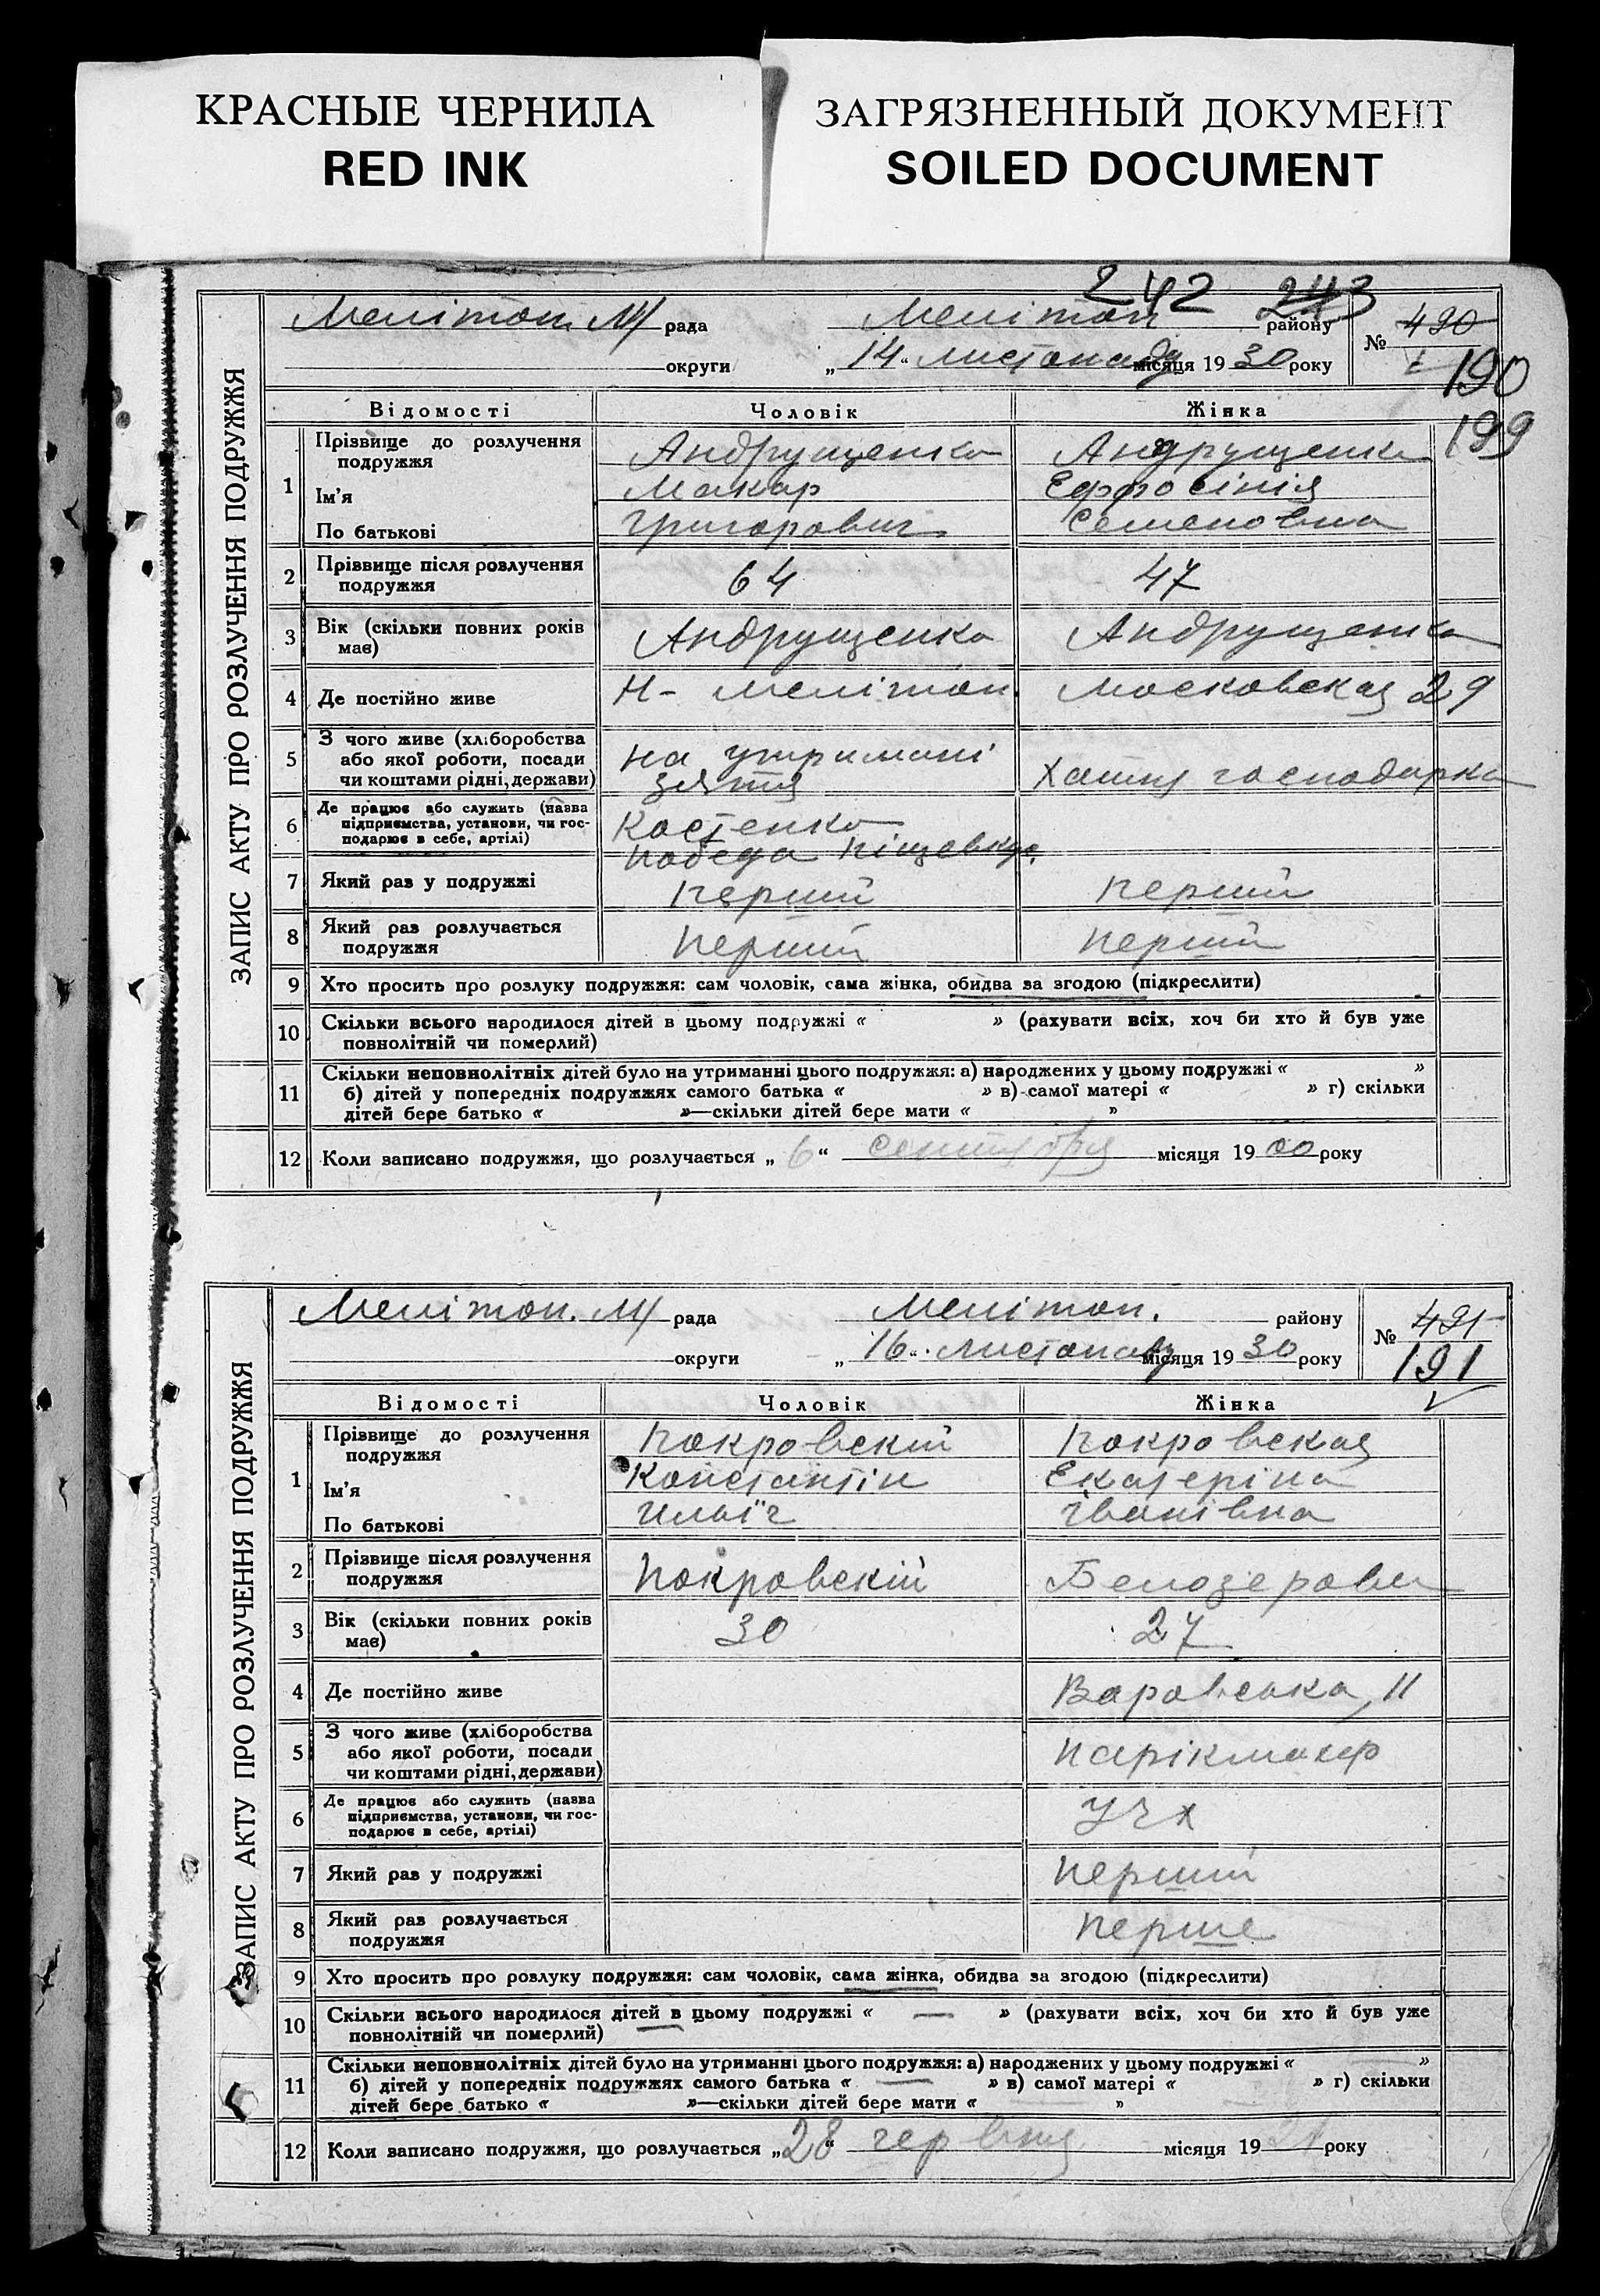 КРАСНЫЕ ЧЕРНИЛА
RED INK
ЗАГРЯЗНЕННЫЙ ДОКУМЕНТ
SOILED DOCUMENT
242 243
ЗАПИС АКТУ ПРО РОЗЛУЧЕННЯ ПОДРУЖЖЯ
Мелітоп. М/ рада Мелітоп району № 490
округи „14“ листопада місяця 1930 року 190
199
Відомості Чоловік Жінка
1 Прізвище до розлучення подружжя Андрущенко Андрущенко
Ім'я Макар Ефросінія
По батькові Григорович Семеновна
2 Прізвище після розлучення подружжя 64 47
3 Вік (скільки повних років має) Андрущенко Андрущенко
4 Де постійно живе Н- Мелітоп. Московская 29
5 З чого живе (хліборобства або якої роботи, посади чи коштами рідні, держави) на утримані зятя Хатня господарка
6 Де працює або служить (назва підприємства, установи, чи господарює в себе, артілі) Костенко Победа
7 Який раз у подружжі перший перший
8 Який раз розлучається подружжя перший перший
9 Хто просить про розлуку подружжя: сам чоловік, сама жінка, обидва за згодою (підкреслити)
10 Скільки всього народилося дітей в цьому подружжі « » (рахувати всіх, хоч би хто й був уже
повнолітній чи померлий)
11 Скільки неповнолітніх дітей було на утриманні цього подружжя: а) народжених у цьому подружжі « »
б) дітей у попередніх подружжях самого батька « » в) самої матері « » г) скільки
дітей бере батько « »—скільки дітей бере мати « »
12 Коли записано подружжя, що розлучається „6“ сентября місяця 1900 року
ЗАПИС АКТУ ПРО РОЗЛУЧЕННЯ ПОДРУЖЖЯ
Мелітоп. М/ рада Мелітоп. району № 491
округи „16“ листопада місяця 1930 року 191
Відомості Чоловік Жінка
1 Прізвище до розлучення подружжя Покровскій Покровская
Ім'я Константін Екатеріна
По батькові Ильїч Іванівна
2 Прізвище після розлучення подружжя Покровскій Белозерова
3 Вік (скільки повних років має) 30 27
4 Де постійно живе 11
5 З чого живе (хліборобства або якої роботи, посади чи коштами рідні, держави) парікмахер
6 Де працює або служить (назва підприємства, установи, чи господарює в себе, артілі)
7 Який раз у подружжі перший
8 Який раз розлучається подружжя перше
9 Хто просить про розлуку подружжя: сам чоловік, сама жінка, обидва за згодою (підкреслити)
10 Скільки всього народилося дітей в цьому подружжі « — » (рахувати всіх, хоч би хто й був уже
повнолітній чи померлий)
11 Скільки неповнолітніх дітей було на утриманні цього подружжя: а) народжених у цьому подружжі « »
б) дітей у попередніх подружжях самого батька « — » в) самої матері « » г) скільки
дітей бере батько « »—скільки дітей бере мати « »
12 Коли записано подружжя, що розлучається „28“ червня місяця 19 року